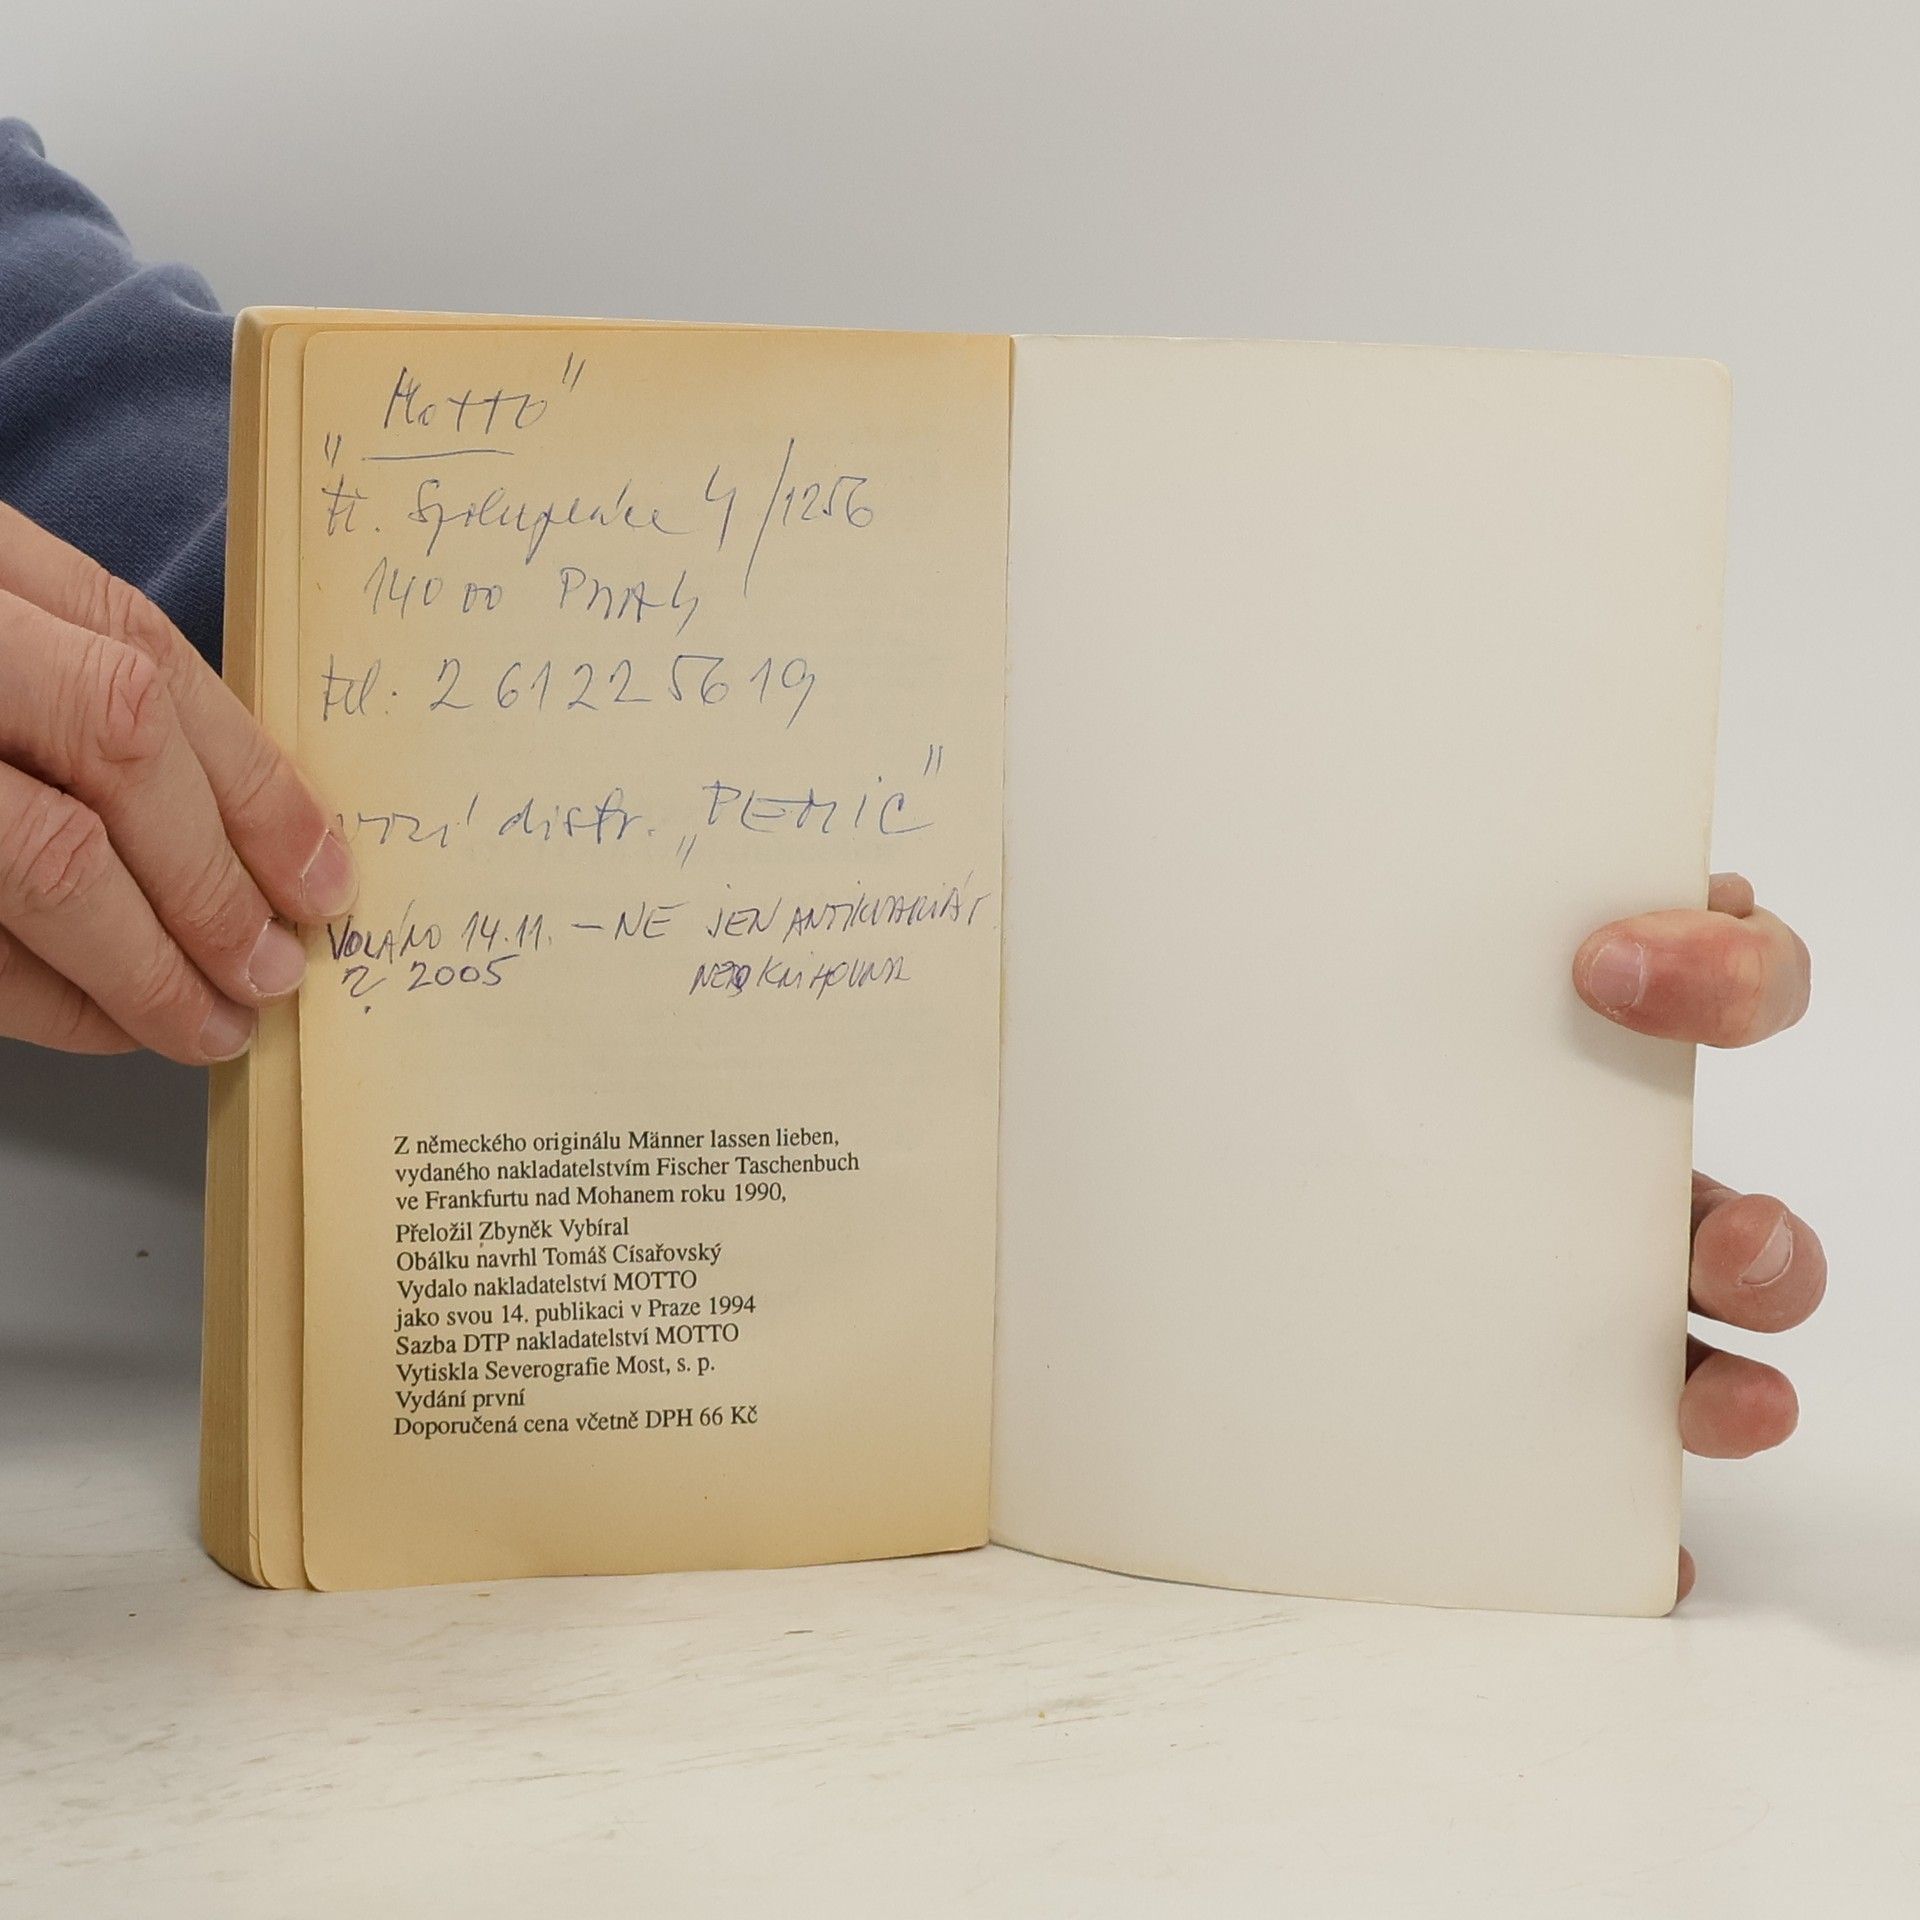 "Motto"
tř. Spolupráce 4/1256
140 00 PRAH 4
tel: 2 61225619
distr. "PEMIC"
VOLÁNO 14.11. – NE JEN ANTIKVARIÁT
2005 KNIHOVNA
Z německého originálu Männer lassen lieben,
vydaného nakladatelstvím Fischer Taschenbuch
ve Frankfurtu nad Mohanem roku 1990,
Přeložil Zbyněk Vybíral
Obálku navrhl Tomáš Císařovský
Vydalo nakladatelství MOTTO
jako svou 14. publikaci v Praze 1994
Sazba DTP nakladatelství MOTTO
Vytiskla Severografie Most, s. p.
Vydání první
Doporučená cena včetně DPH 66 Kč